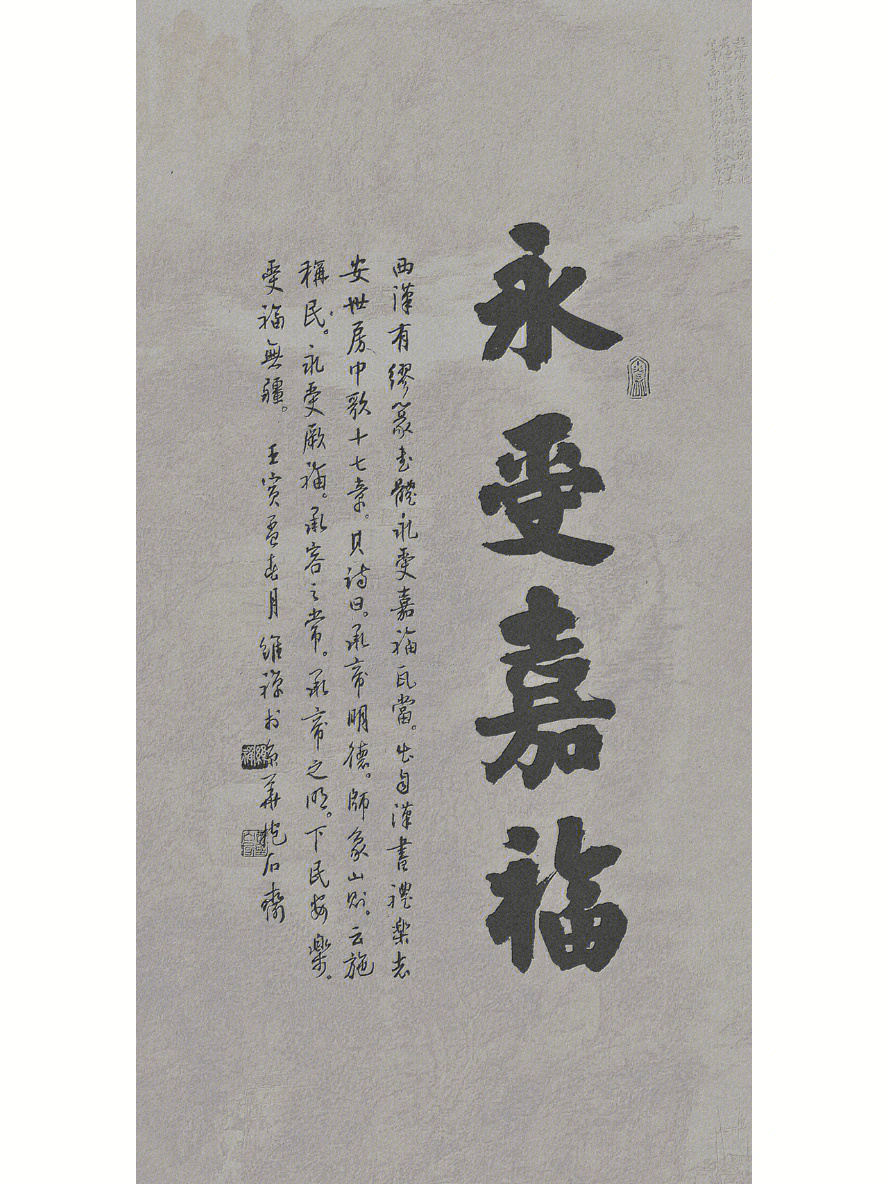 永受嘉福
西漢有繆篆書體永受嘉福瓦當。出自漢書禮樂志
安世房中歌十七章。其詩曰。承帝明德。師象山則。云施
稱民。永受厥福。承容之常。承帝之明。下民安樂。
受福無疆。壬寅孟春月維禪於京華抱石齋